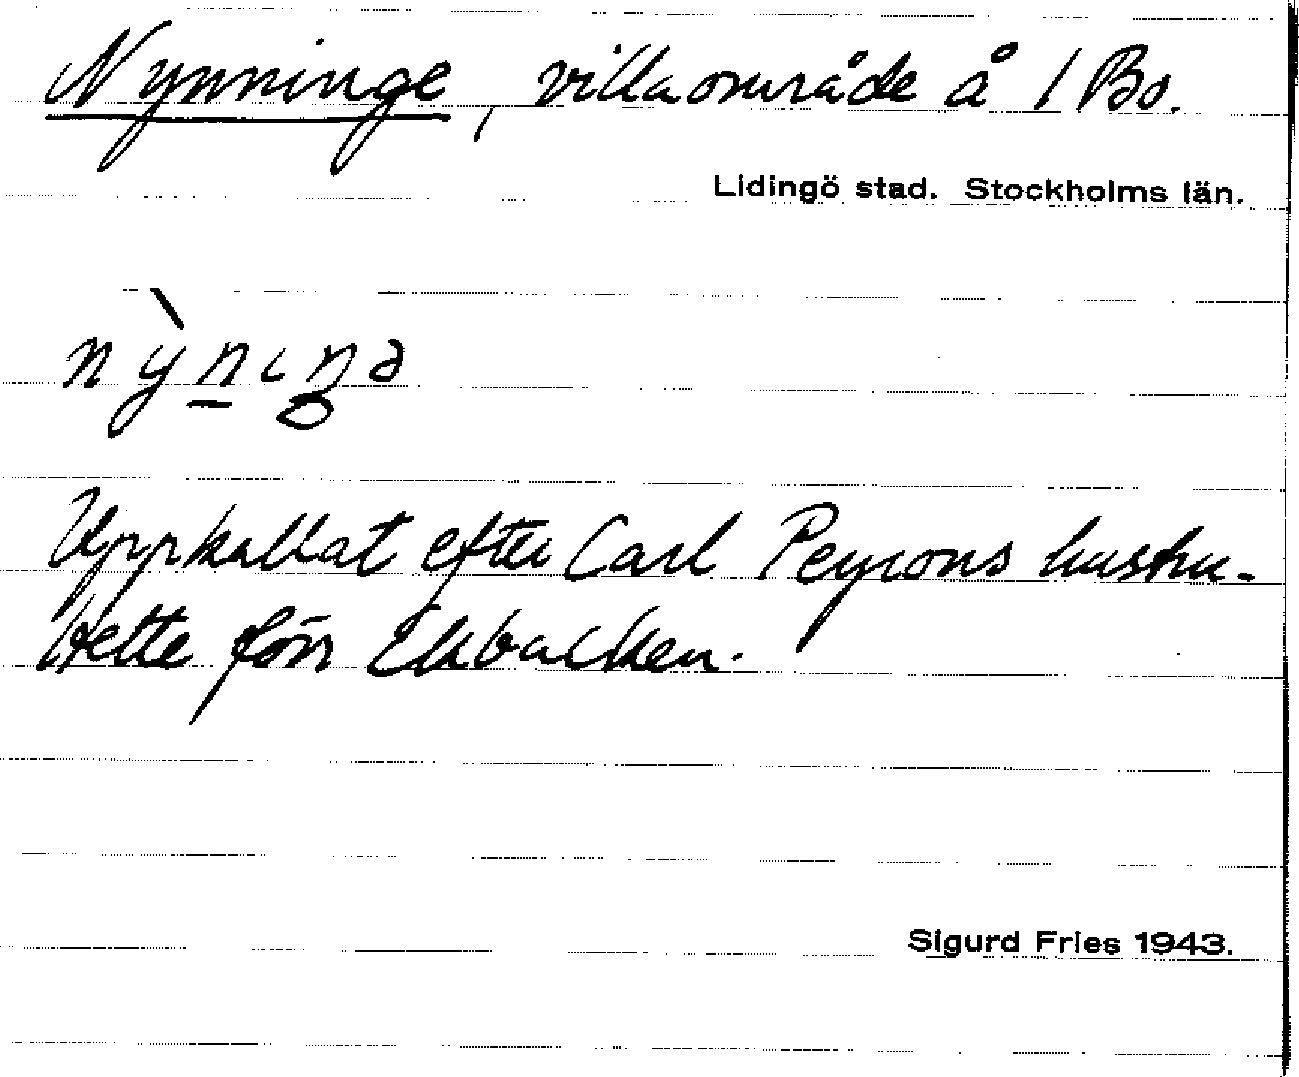 Nynninge, villaområde å 1 Bo.
Lidingö stad. Stockholms län.
nỳnıŋə
Uppkallat efter Carl Peyrons hustru.
Hette förr Ekbacken.
Sigurd Fries 1943.